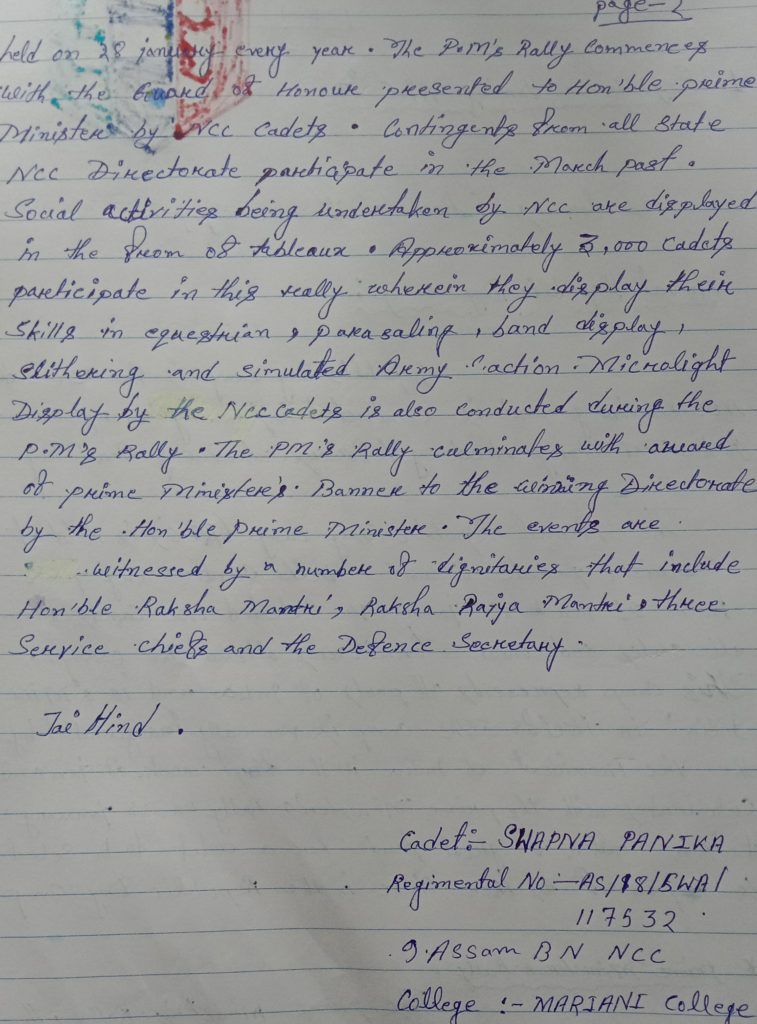 page-2
held on 28 january every year. The P.M's Rally Commences
with the Guard of Honour presented to Hon'ble prime
Minister by NCC Cadets. Contingents from all State
NCC Directorate participate in the March past.
Social activities being undertaken by NCC are displayed
in the from of tableaux. Approximately 3,000 Cadets
participate in this really wherein they display their
Skills in equestrian, parasaling, band display,
Slithering and simulated Army action. Microlight
Display by the NCC cadets is also conducted during the
P.M's Rally. The PM's Rally culminates with award
of prime Minister's Banner to the winning Directorate
by the Hon'ble prime Minister. The events are
witnessed by a number of dignitaries that include
Hon'ble Raksha Mantri, Raksha Rajya Mantri, three
Service chiefs and the Defence Secretary.
Jai Hind.
Cadet:- SWAPNA PANIKA
Regimental No:- AS/18/SWA/
117532
9.Assam BN NCC
College :- MARIANI College